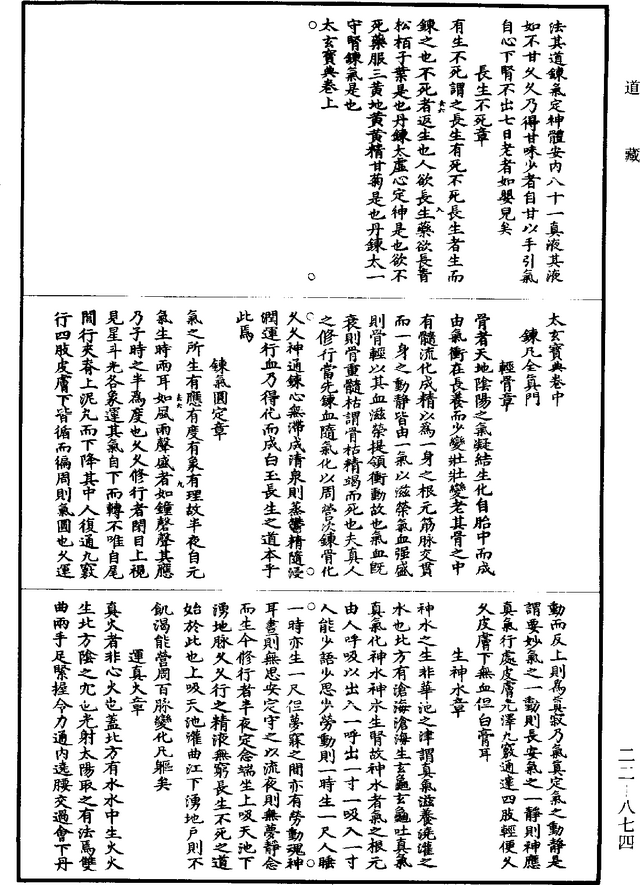 道藏
法其道鍊氣定神體安內八十一真液其液
如不甘久久乃得甘味少者自甘以手引氣
自心下腎不出七日老者如嬰兒矣
長生不死章
有生不死謂之長生有死不死長生者生而
鍊之也不死者返生也人欲長生藥欲長青
松栢子葉是也丹鍊太虛心定神是也欲不
死藥服三黃地黃黃精甘菊是也丹鍊太一
守腎鍊氣是也
太玄寶典卷上
太玄寶典卷中
鍊凡全真門
輕骨章
骨者天地陰陽之氣凝結生化自胎中而成
由氣衝在長養而少變壯壯變老其骨之中
有髓流化成精以為一身之根元筋脉交貫
而一身之動靜皆由一氣以滋榮氣血強盛
則骨輕以其血滋榮提領衝動故也氣血既
衰則骨重髓枯謂骨枯精竭而死也夫真人
之修行當先鍊血隨氣化以周營次鍊骨化
久久神通鍊心無滯成清泉則蒸鬱精隨浸
潤運行血乃得化而成白玉長生之道本乎
此焉
鍊氣圓定章
氣之所生有應有度有象有理故半夜自元
氣生時兩耳如風雨聲盛者如鐘磬聲其應
乃子時之半為度也久久修行者閉目上視
見星斗光各象運其氣自下而轉不唯自尾
閭行夾脊上泥丸而下降其中人復通九竅
行四肢皮膚下皆循而徧周則氣圓也久運
動而反上則為真寂乃氣真定氣之動靜是
謂要妙氣之一動則長安氣之一靜則神應
真氣行處皮膚光澤九竅通達四肢輕便久
久皮膚下無血但白膏耳
生神水章
神水之生非華池之津謂真氣滋養澆灌之
水也北方有滄海滄海生玄龜玄龜吐真氣
真氣化神水神水生腎故神水者氣之根元
由人呼吸以出入一呼出一寸一吸入一寸
人能少語少思少勞動則一時生一尺人睡
一時亦生一尺但夢寐之間亦有勞動魂神
耳晝則無思安定守之以流夜則無夢靜念
而生今修行者半夜定念端坐上吸天池下
湧地脉久久行之精液無窮長生不死之道
始於此也上吸天池灌曲江下湧地戶則不
飢渴能營周百脉變化凡軀矣
運真火章
真火者非心火也蓋北方有水水中生火火
生北方陰之宂也光射太陽取之有法焉雙
曲兩手足緊握令力通內遶腰交過會下丹
二二-八七四